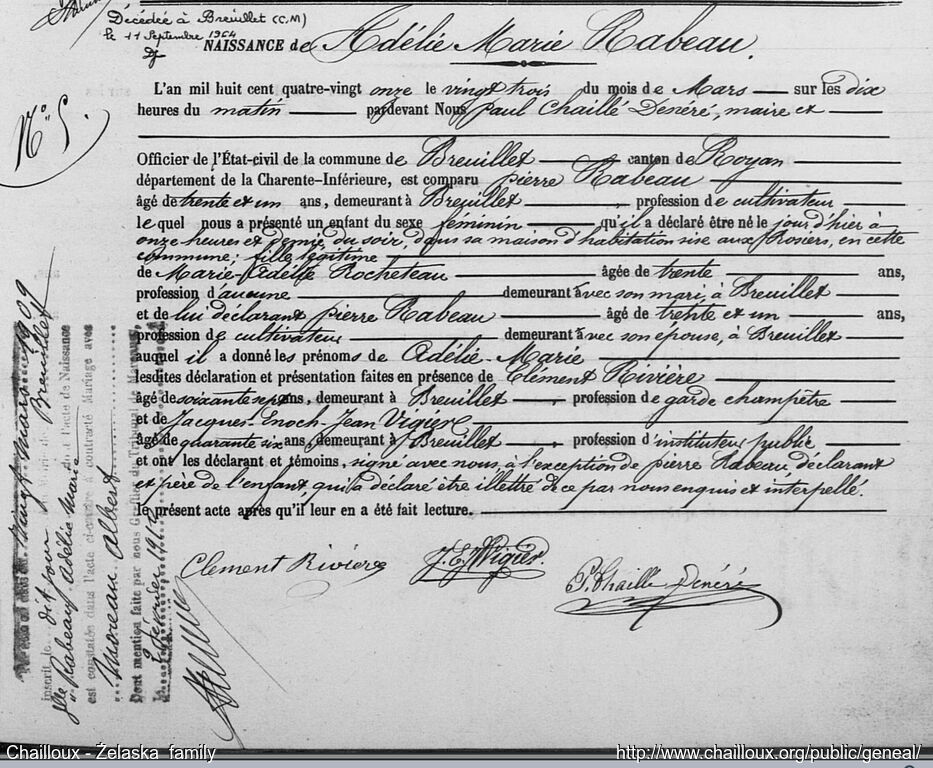 Décédée à Breuillet (C.M)
le 11 Septembre 1964
NAISSANCE de Adélie Marie Rabeau.
N° 5.
L'an mil huit cent quatre-vingt onze le vingt trois du mois de Mars sur les dix
heures du matin pardevant Nous Paul Chaillé Denéré, maire et
Officier de l'État-civil de la commune de Breuillet canton de Royan
département de la Charente-Inférieure, est comparu pierre Rabeau
âgé de trente et un ans, demeurant à Breuillet, profession de cultivateur
le quel nous a présenté un enfant du sexe féminin qu'il a déclaré être né le jour d'hier à
onze heures et demie du soir, dans sa maison d'habitation sise aux Rosiers, en cette
commune; fille légitime
de Marie-Adélie Rocheteau âgée de trente ans,
profession d'aucune demeurant avec son mari, à Breuillet
et de lui déclarant pierre Rabeau âgé de trente et un ans,
profession de cultivateur demeurant avec son épouse, à Breuillet
auquel il a donné les prénoms de Adélie-Marie
lesdites déclaration et présentation faites en présence de Clément Rivière
âgé de soixante sept ans, demeurant à Breuillet, profession de garde champêtre
et de Jacques-Enoch-Jean Vigier
âgé de quarante six ans, demeurant à Breuillet, profession d'instituteur public
et ont les déclarant et témoins, signé avec nous, à l'exception de pierre Rabeau, déclarant
et père de l'enfant, qui a déclaré être illettré de ce par nous enquis et interpellé.
le présent acte après qu'il leur en a été fait lecture.
Clement Rivière
J. E. J. Vigier.
P. Chaillé Denéré
vingt mars 1909
inscrit le dit jour Breuillet
de l'acte de Naissance
Mlle Rabeau Adélie Marie
est constatée dans l'acte ci-contre a contracté Mariage avec
Moreau Albert
Dont mention faite par nous Greffier du Tribunal de
le février 1912
Chailloux - Żelaska family
http://www.chailloux.org/public/geneal/